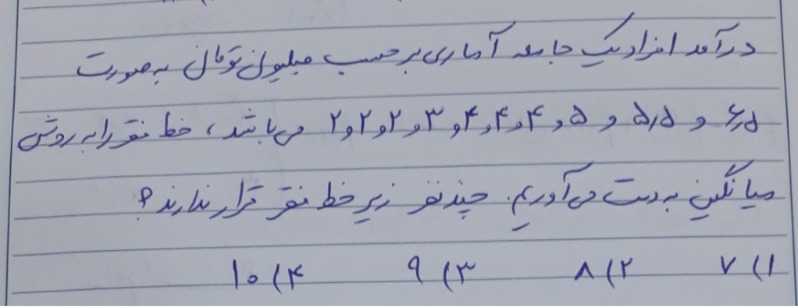 درآمد افراد یک جامعه آماری برحسب میلیون تومان به صورت
۶٫۵ و ۵٫۵ و ۵ و ۴ و ۴ و ۴ و ۳ و ۲ و ۲ و ۲ می باشد، خط فقر را به روش
میانگین به دست می آوریم. چند نفر زیر خط فقر قرار ندارند؟
۱) ۷ ۲) ۸ ۳) ۹ ۴) ۱۰